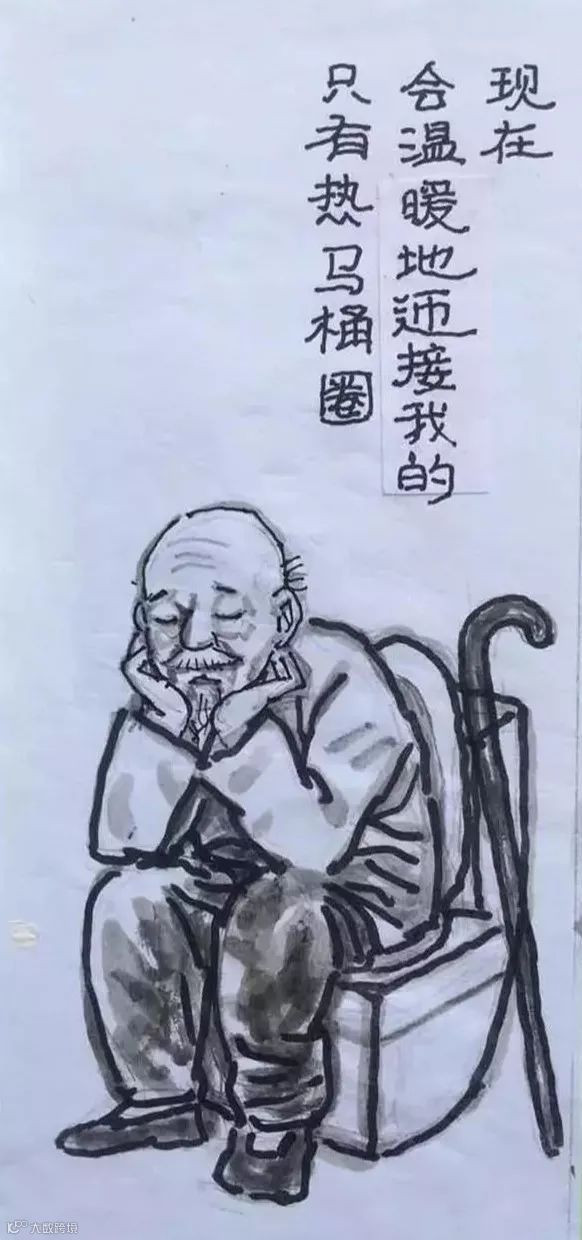 现在
会温暖地迎接我的
只有热马桶圈
大数跨境